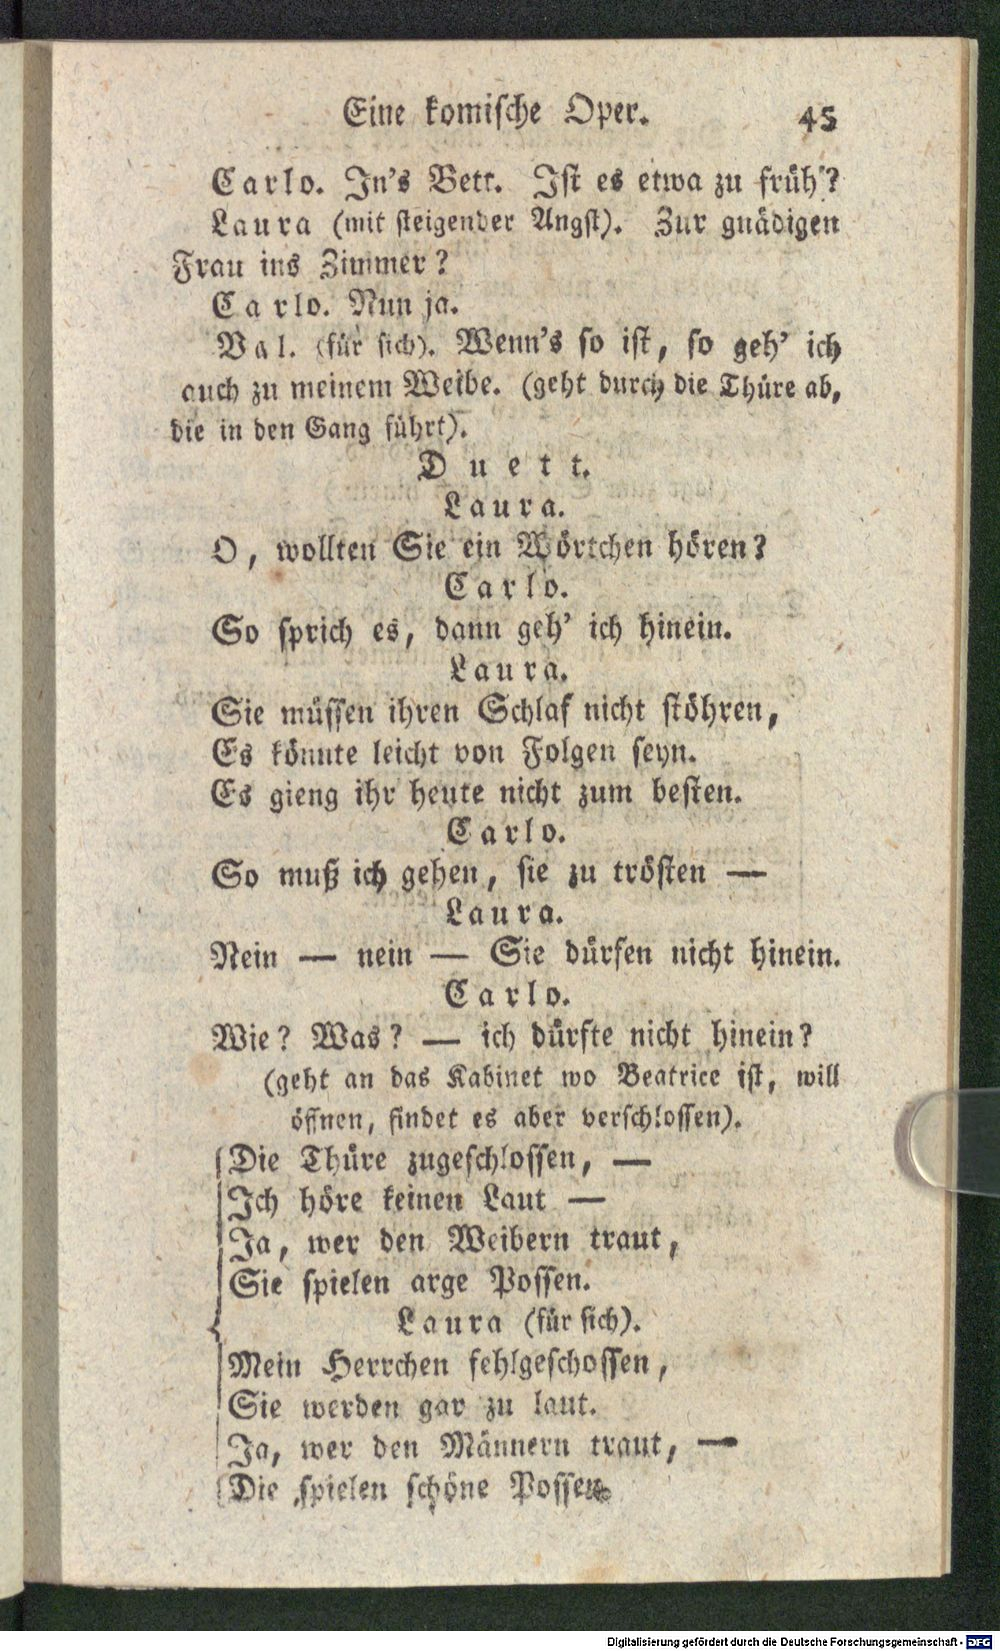 Eine komische Oper. 45
Carlo. In's Bett. Ist es etwa zu früh'?
Laura (mit steigender Angst). Zur gnädigen
Frau ins Zimmer?
Carlo. Nun ja.
Val. (für sich). Wenn's so ist, so geh' ich
auch zu meinem Weibe. (geht durch die Thüre ab,
die in den Gang führt).
Duett.
Laura.
O, wollten Sie ein Wörtchen hören?
Carlo.
So sprich es, dann geh' ich hinein.
Laura.
Sie müssen ihren Schlaf nicht stöhren,
Es könnte leicht von Folgen seyn.
Es gieng ihr heute nicht zum besten.
Carlo.
So muß ich gehen, sie zu trösten —
Laura.
Nein — nein — Sie dürfen nicht hinein.
Carlo.
Wie? Was? — ich dürfte nicht hinein?
(geht an das Kabinet wo Beatrice ist, will
öffnen, findet es aber verschlossen).
Die Thüre zugeschlossen, —
Ich höre keinen Laut —
Ja, wer den Weibern traut,
Sie spielen arge Possen.
Laura (für sich).
Mein Herrchen fehlgeschossen,
Sie werden gar zu laut.
Ja, wer den Männern traut, —
Die spielen schöne Possen.
Digitalisierung gefördert durch die Deutsche Forschungsgemeinschaft - DFG